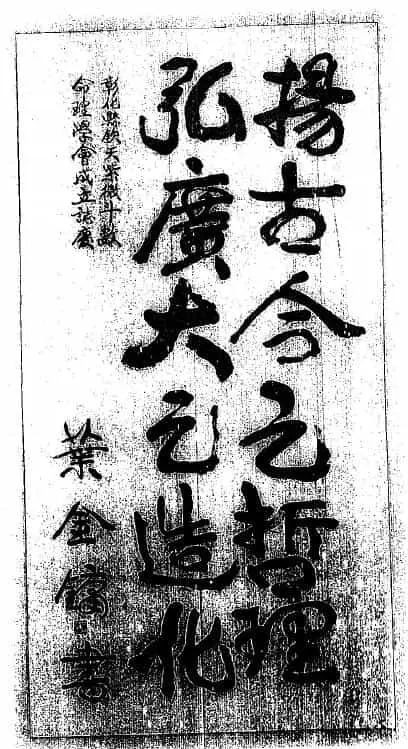 揚古今之哲理
弘廣大之造化
彰化縣欽天紫微斗數
命理學會成立誌慶
葉金鏞書